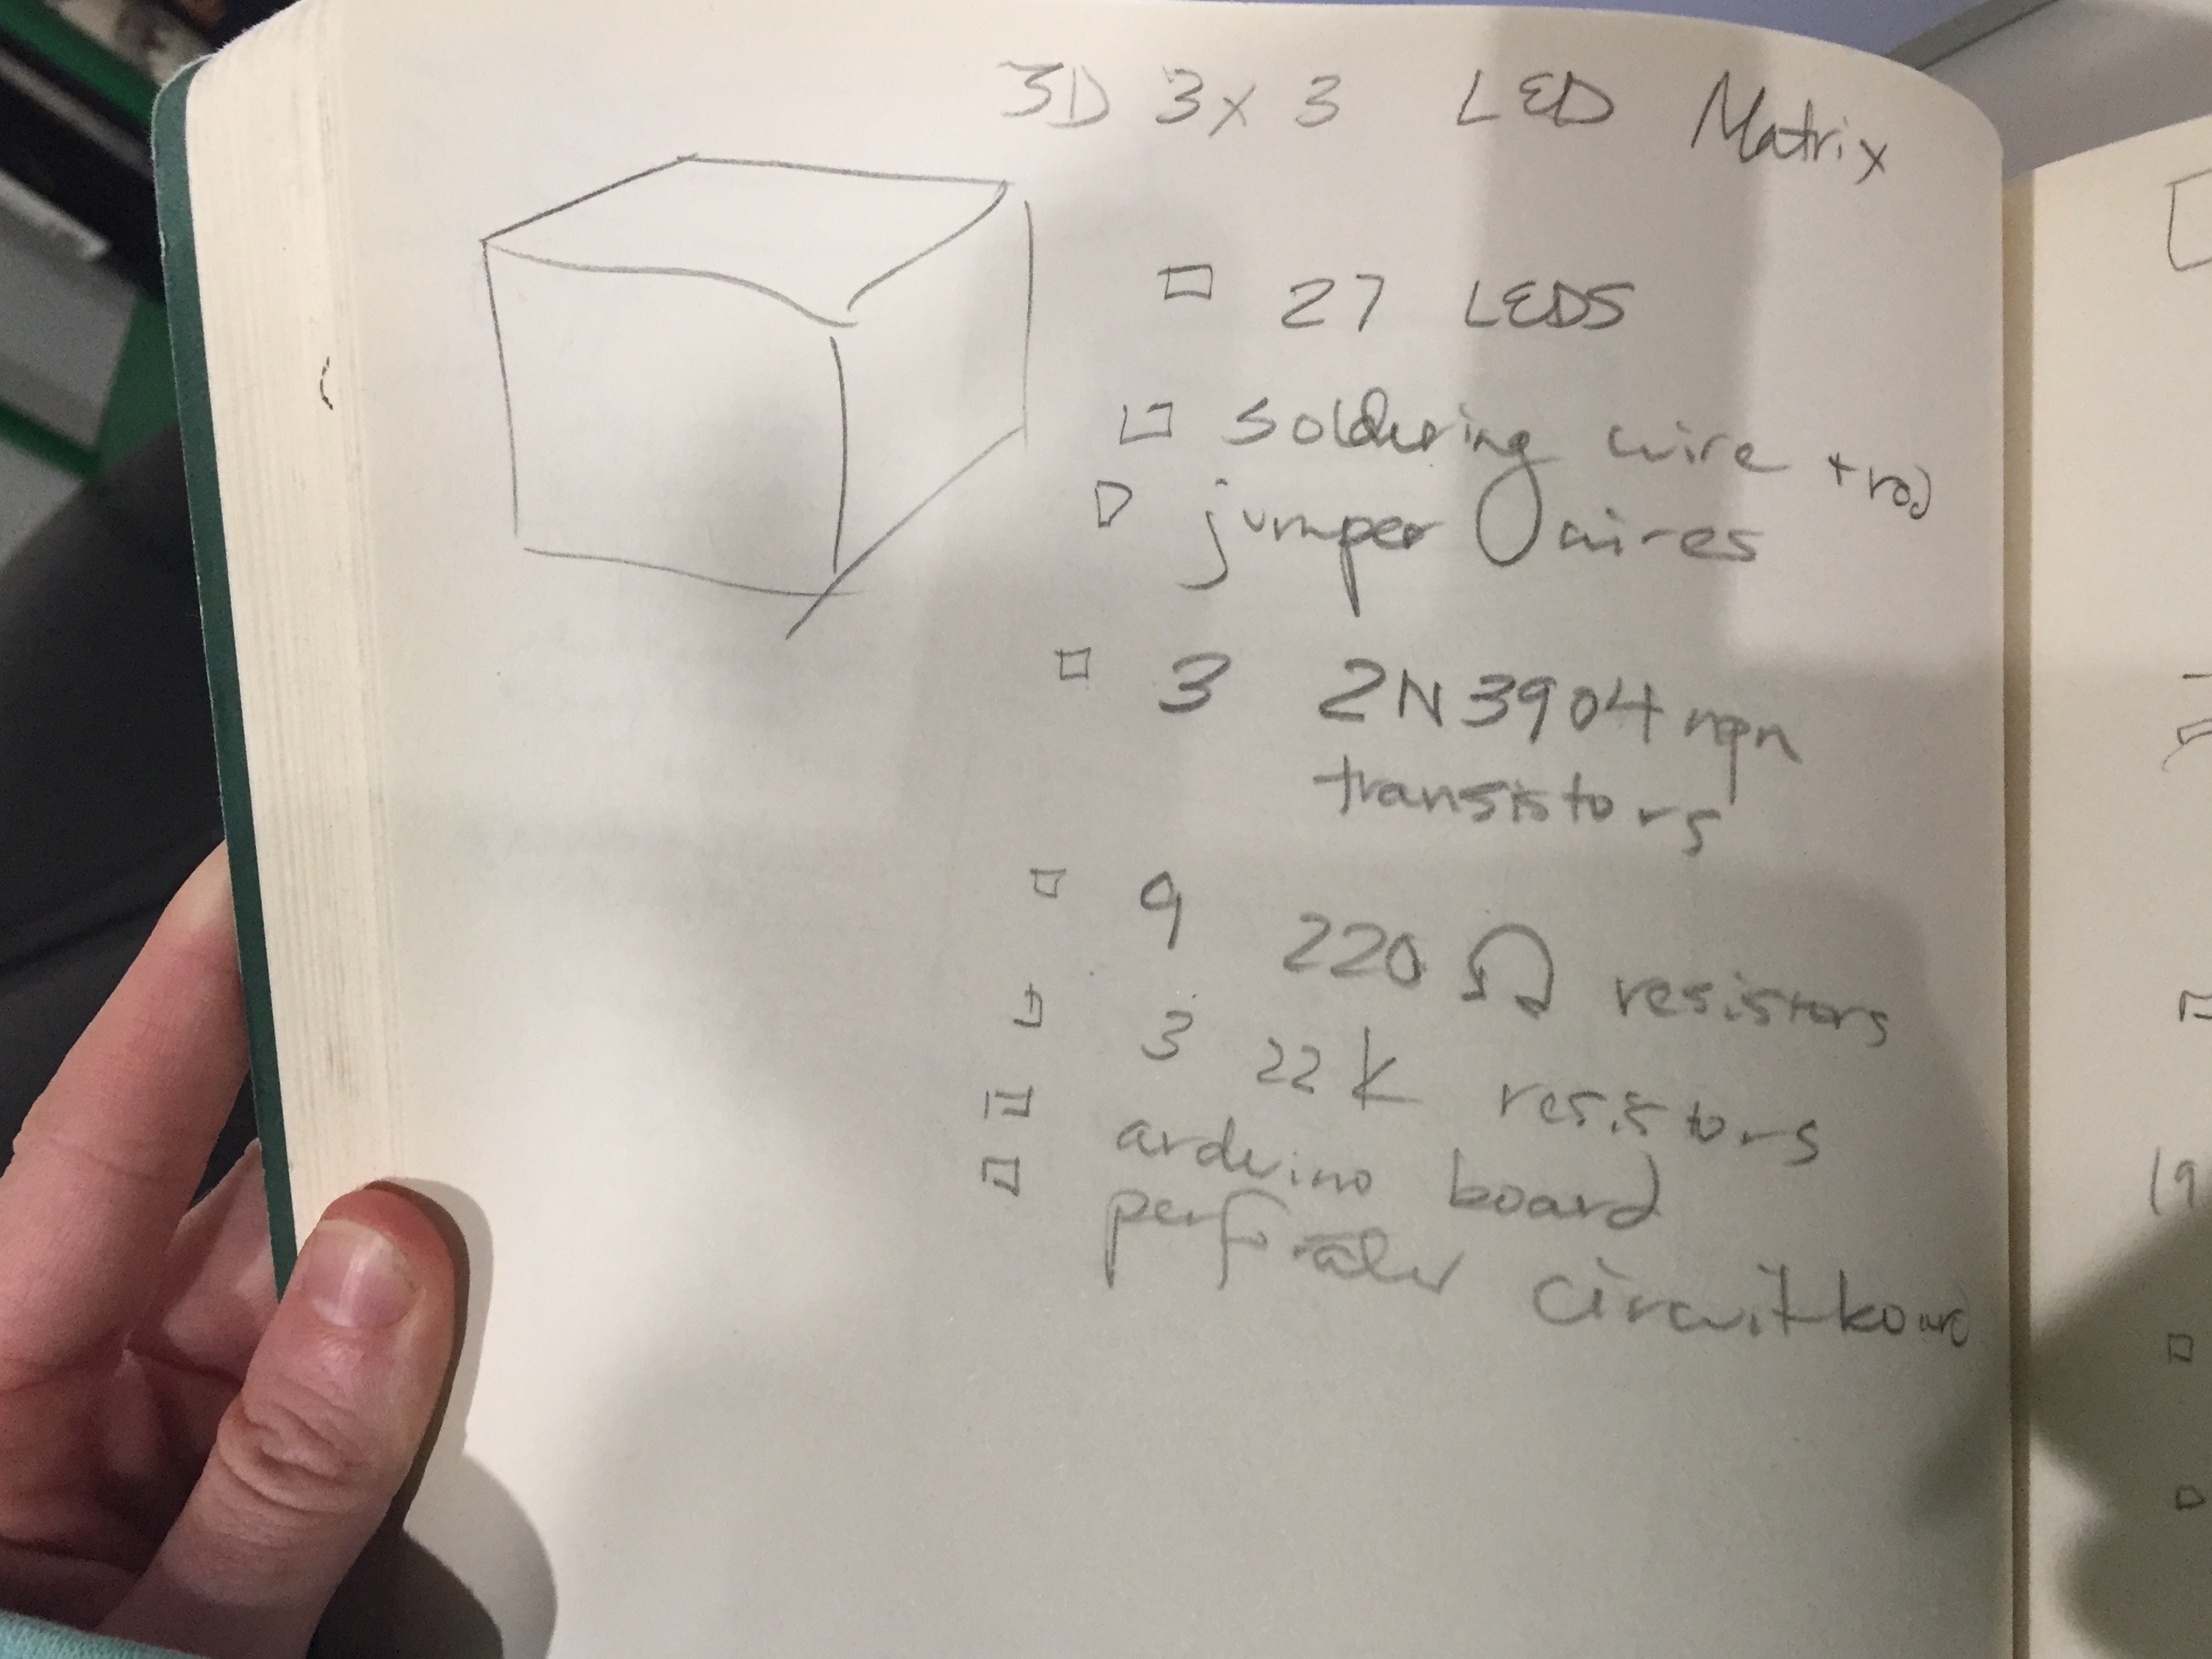 3D 3x3 LED Matrix
27 LEDS
soldering wire + rod
jumper wires
3 2N3904 npn
transistors
9 220 Ω resistors
3 22k resistors
arduino board
circuit board
(9